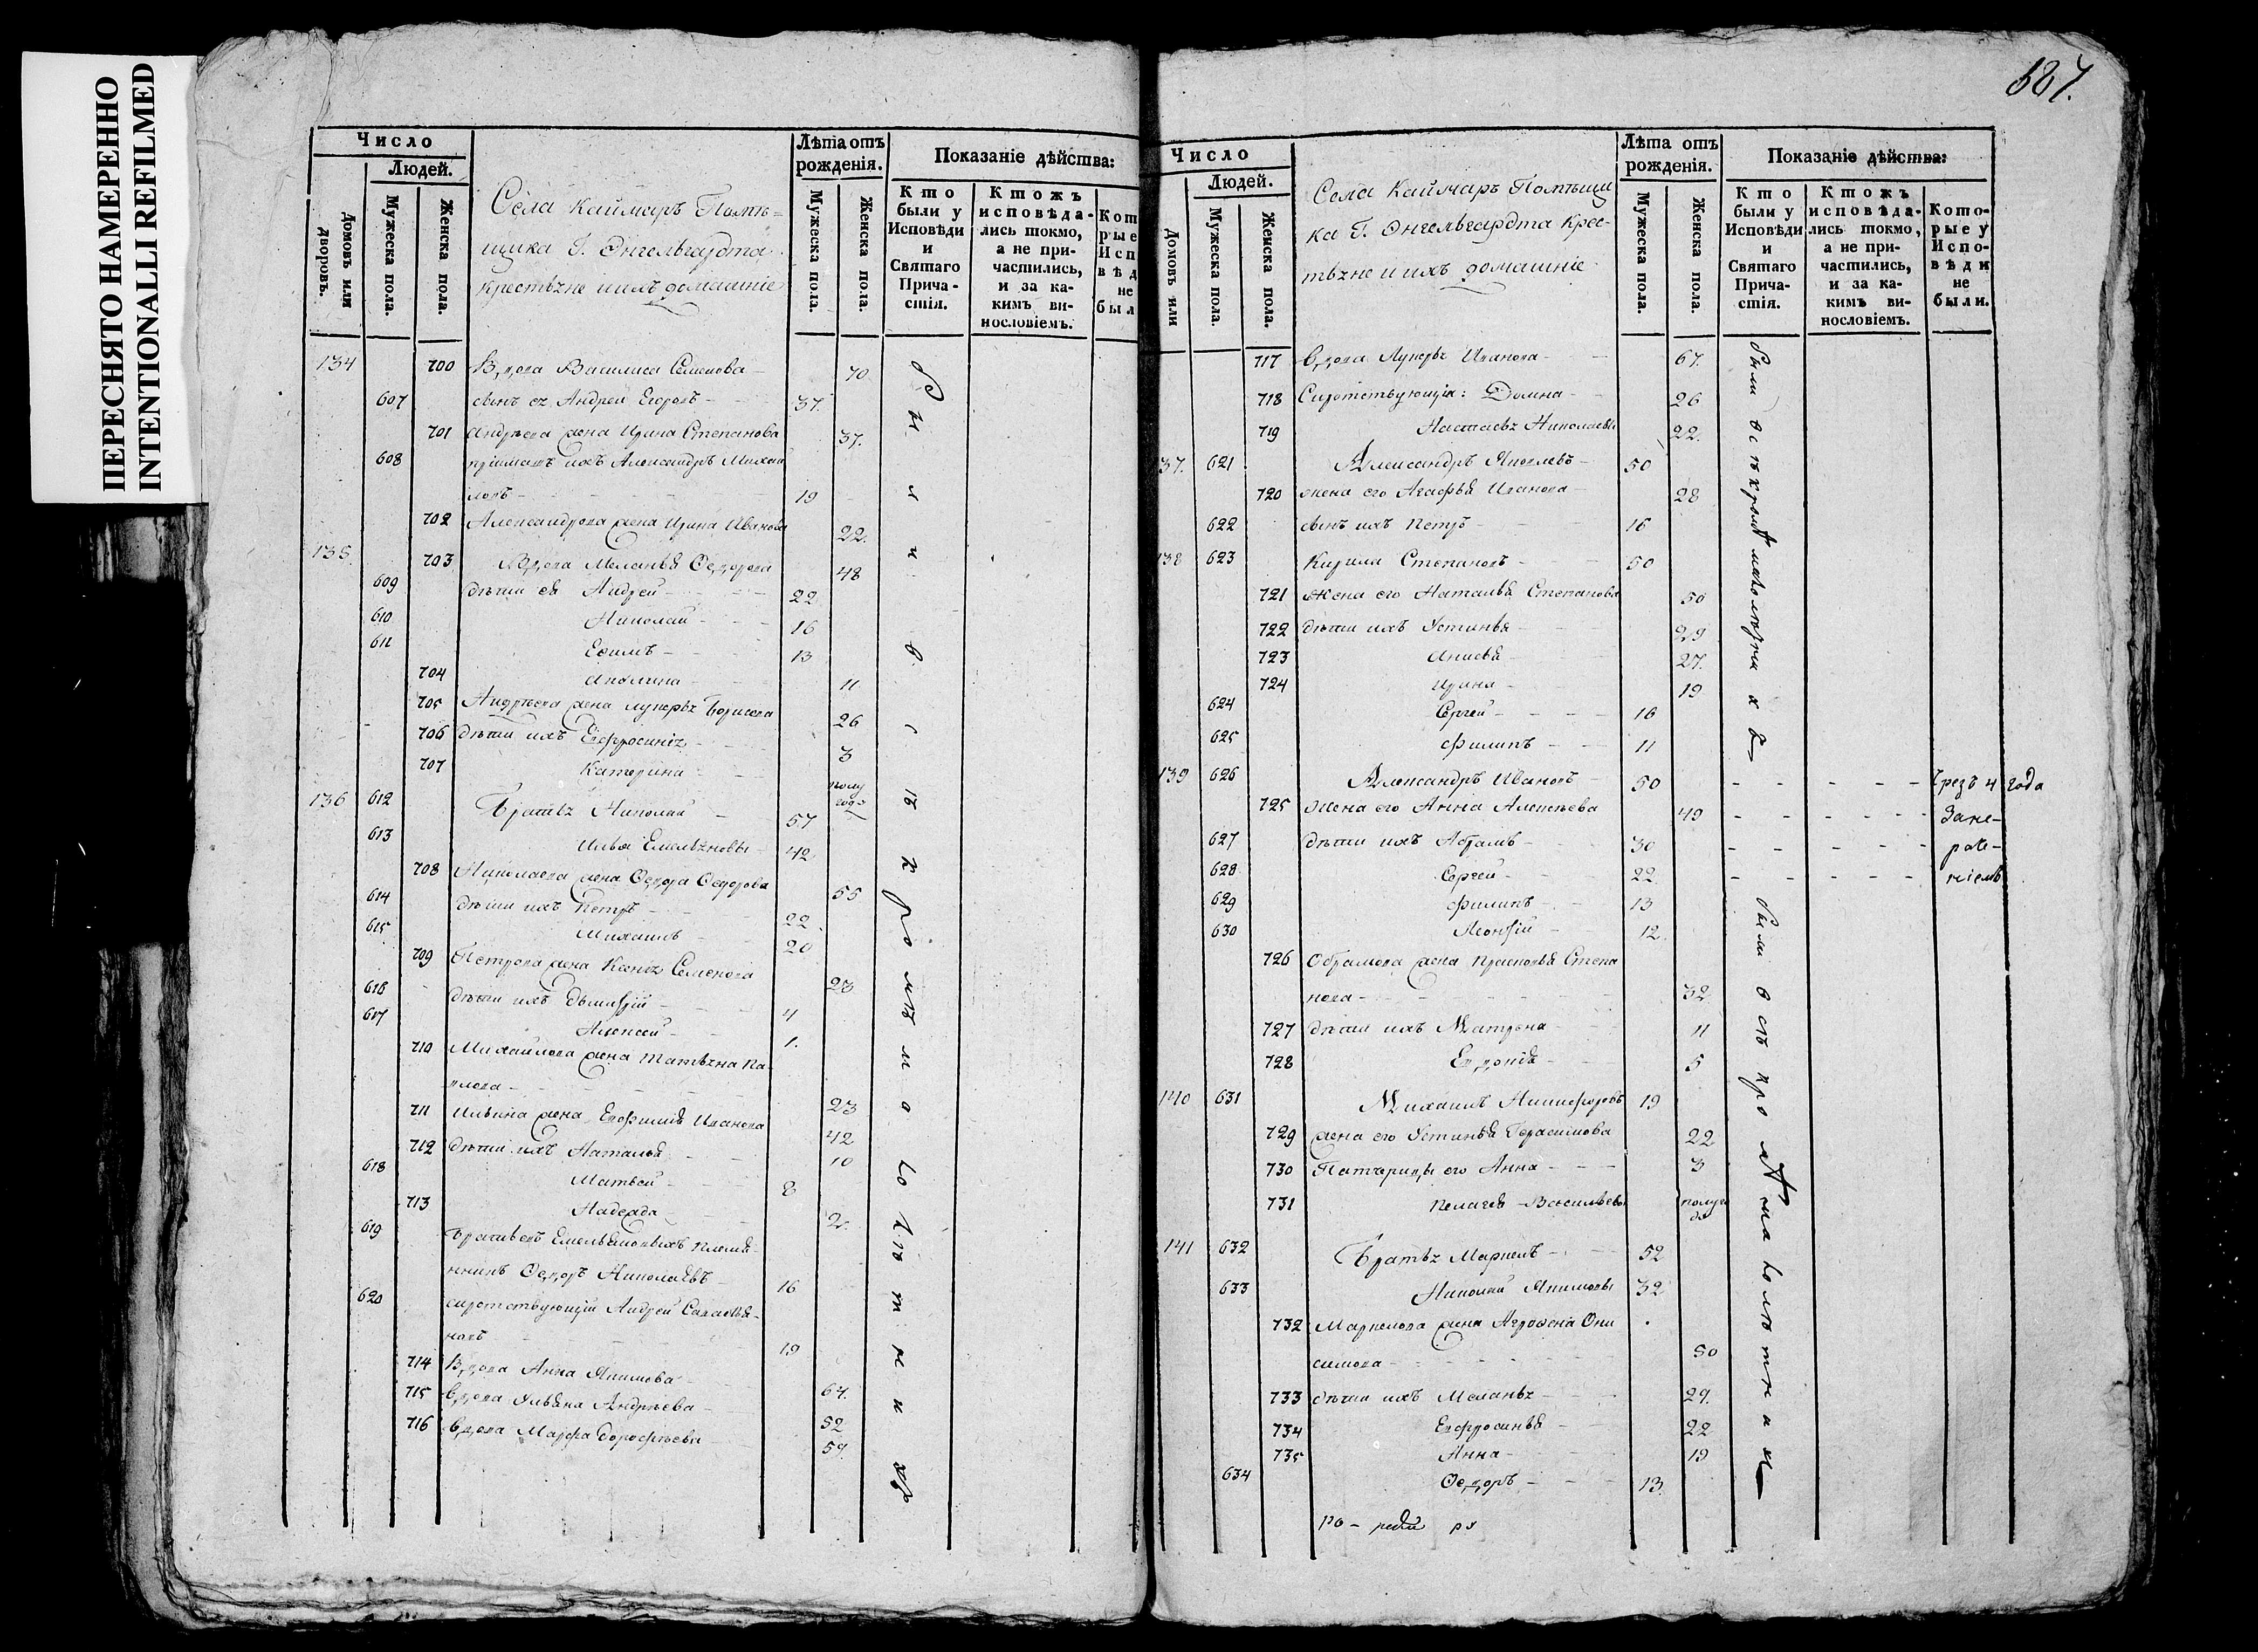 ПЕРЕСНЯТО НАМЕРЕННО
INTENTIONALLI REFILMED
Число
Людей.
Домовъ или дворовъ.
Мужеска пола.
Женска пола.
Села Каймаръ Помѣ=
щика Г. Энгельгардта
крестьяне и ихъ домашніе
Лѣта отъ рожденія.
Мужеска пола.
Женска пола.
Показаніе дѣйства:
Кто были у Исповѣди и Святаго Прича-стія.
Ктожъ исповѣда-лись токмо, а не при-частились, и за ка-кимъ ви-нословіемъ.
134 700 Вдова Василиса Семенова 70
607 сынъ ея Андрей Егоровъ 37.
701 Андреева жена Ирина Степанова 37.
608 пріимышъ ихъ Александръ Михай
ловъ 19
702 Александрова жена Ирина Иванова 22.
135. 703 Вдова Меланья Ѳедорова 48
609 дѣти ея Андрей 22
610 Николай 16
611 Ефимъ 13
704 Акулина 11
705 Андреева жена Лукерья Борисова 26
706 дѣти ихъ Ефросинія 3
707 Катерина полу года
136 612 Братья Николай 57
613 Илья Емельяновы 42
708 Николаева жена Ѳедора Ѳедорова 55
614 дѣти ихъ Петръ 22
615 Михаилъ 20
709 Петрова жена Ксенія Семенова 23
616 дѣти ихъ Дмитрій 4
617 Алексей 1.
710 Михайлова жена Татьяна Па
влова 23
711 Ильина жена Евфимія Иванова 42
712 дѣти ихъ Наталья 10
618 Матвей 8
713 Надежда 2.
619 Братьевъ Емельяновыхъ племя-
нникъ Ѳедоръ Николаевъ 16
620 сиротствующій Андрей Савастья-
новъ 19
714 Вдова Анна Якимова 67.
715 вдова Ульяна Андреева 52
716 вдова Марфа Дорофѣева 59.
687.
Число
Людей.
Домовъ или
Мужеска пола.
Женска пола.
Села Каймаръ Помѣщи
ка Г. Энгельгардта крес-
тьяне и ихъ домашніе
Лѣта отъ рожденія.
Мужеска пола.
Женска пола.
Показаніе дѣйства:
Кто были у Исповѣди и Святаго Прича-стія.
Ктожъ исповѣда-лись токмо, а не при-частились, и за ка-кимъ ви-нословіемъ.
Кото-рые у Испо-вѣди не были.
717 вдова Лукерья Иванова 67.
718 Сиротствующія: Домна 26
719 Настасья Николаевы 22.
137. 621 Александръ Яковлевъ 50
720 жена его Агафья Иванова 28
622 сынъ ихъ Петръ 16
138 623 Кирила Степановъ 50
721 жена его Наталья Степанова 50
722 дѣти ихъ Устинья 29
723 Анисья 27.
724 Ирина 19
624 Сергей 16
625 Филипъ 11
были всѣ кромѣ малолѣтних
139 626 Александръ Ивановъ 50 Чрезъ 4 года
725 жена его Анна Алексѣева 49 Зане-
627 дѣти ихъ Абрамъ 30 раче-
628 Сергей 22 ніемъ
629 Филипъ 13
630 Леонтій 12
726 Обрамова жена Прасковья Степа
нова 32
727 дѣти ихъ Матрена 11
728 Евдокія 5
140 631 Михаилъ Никифоровъ 19
729 жена его Устинья Герасимова 22
730 Патчерицы его Анна 3
731 Пелагея Васильевы полуго да
141 632 Братья Маркелъ 52
633 Николай Якимовы 32
732 Маркелова жена Аграфена Они
симова 50
733 дѣти ихъ Меланья 29.
734 Евфросинья 22
735 Анна 19
634 Ѳедоръ 13
были всѣ кромѣ малолѣтних